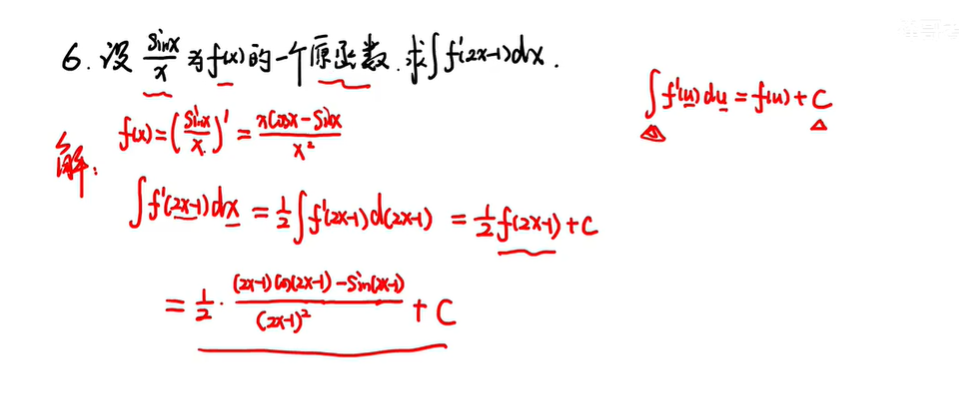 6. 设 sinx/x 为f(x)的一个原函数. 求∫f'(2x-1)dx.
∫f'(u)du = f(u) + C
解: f(x) = (sinx/x)' = (xcosx - sinx)/x²
∫f'(2x-1)dx = 1/2∫f'(2x-1)d(2x-1) = 1/2 f(2x-1) + C
= 1/2 · ((2x-1)cos(2x-1) - sin(2x-1))/(2x-1)² + C